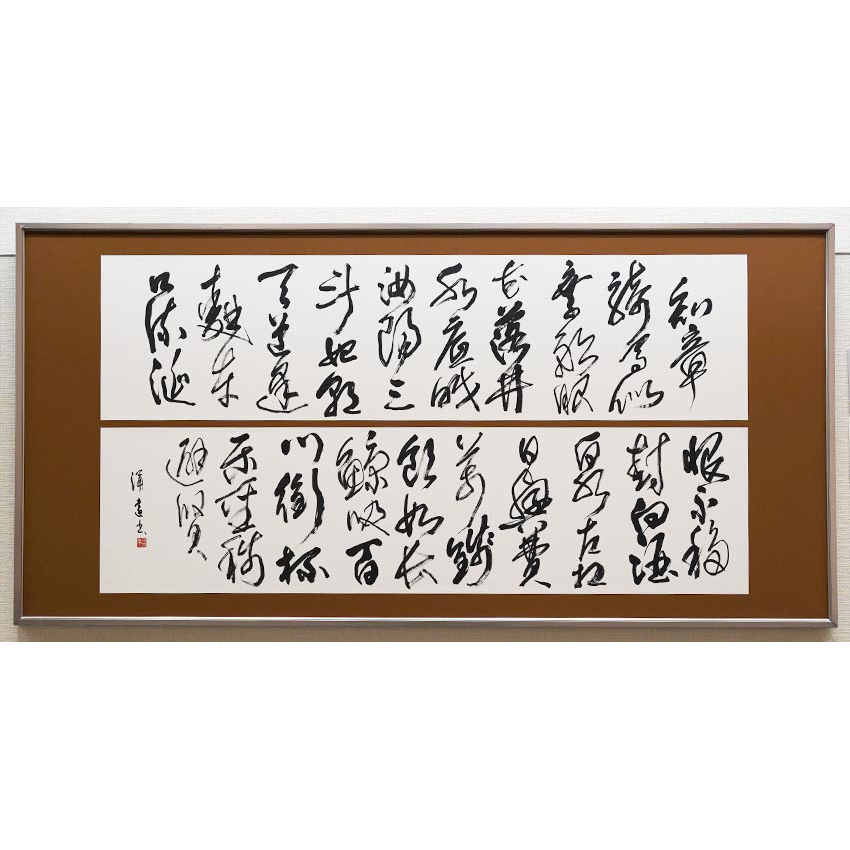 知章
騎馬似
乘船眼
花落井
水底眠
汝陽三
斗始朝
天道逢
麴車
口流涎
恨不移
封向酒
泉左相
日興費
萬錢
飲如長
鯨吸百
川銜杯
樂聖称
避賢
書